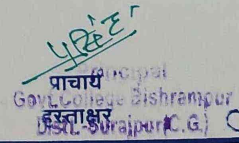 प्राचार्य
Principal
Govt. College Bishrampur
हस्ताक्षर
Distt.-Surajpur (C.G.)